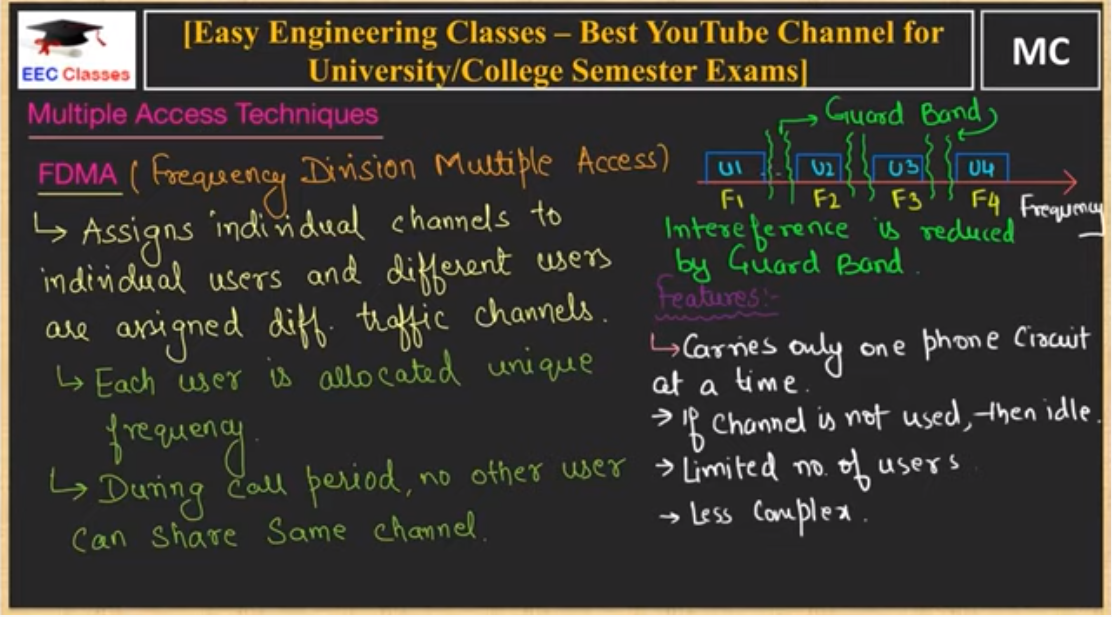 [Easy Engineering Classes – Best YouTube Channel for
University/College Semester Exams]
EEC Classes
MC
Multiple Access Techniques
FDMA (Frequency Division Multiple Access)
↳ Assigns individual channels to
individual users and different users
are assigned diff. traffic channels.
↳ Each user is allocated unique
frequency.
↳ During call period, no other user
can share same channel.
→ Guard Band
U1 U2 U3 U4
F1 F2 F3 F4 Frequency
Intereference is reduced
by Guard Band.
Features:-
↳ Carries only one phone circuit
at a time.
→ If channel is not used, then idle.
→ Limited no. of users
→ Less Complex.